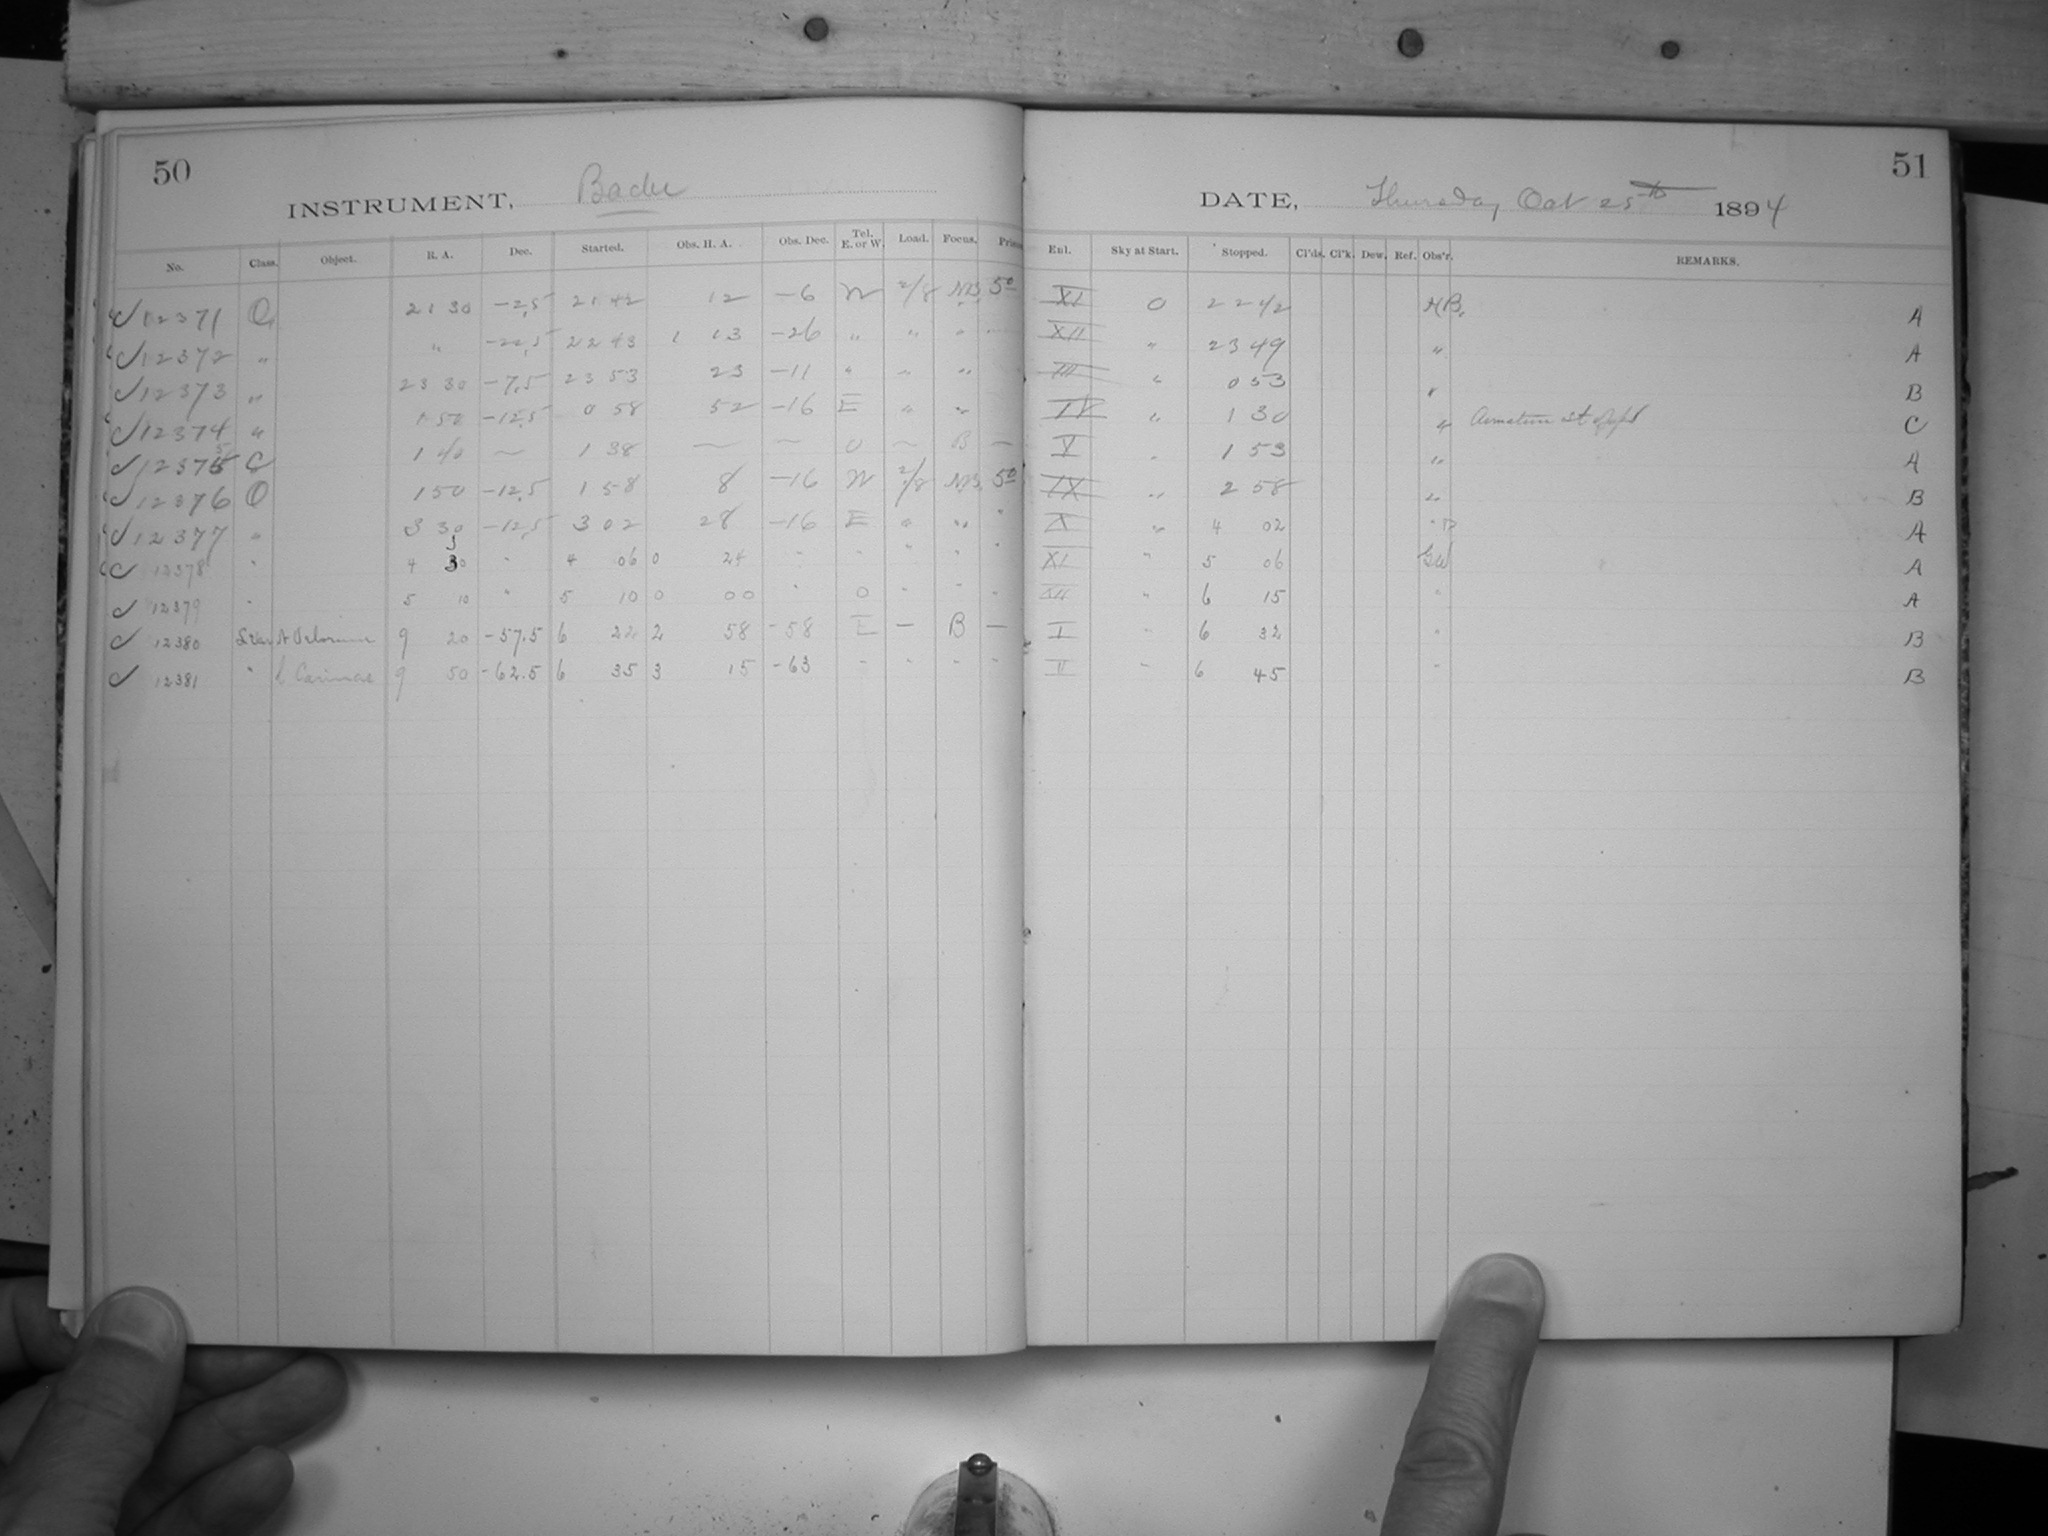 50
INSTRUMENT, Bache
No. Class. Object. R. A. Dec. Started. Obs. H. A. Obs. Dec. Tel. E. or W. Load. Focus.
12371 O 21 30 -2.5 21 42 12 -6 W 2/8 NB. 50
12372 " " 22 43 1 13 -26 " " " "
12373 " 23 30 -7.5 23 53 23 -11 " " "
12374 " 1 50 -12.5 0 58 52 -16 E " "
12375 C 1 40 ~ 1 38 ~ ~ 0 ~ B —
12376 O 1 50 -12.5 1 58 8 -16 W 2/8 NB. 50
12377 " 3 30 -12.5 3 02 28 -16 E " " "
12378 " 4 30 " 4 06 0 24 " " " " "
12379 " 5 10 " 5 10 0 00 " 0 " " "
12380 A Velorum 9 20 -57.5 6 22 2 58 -58 E — B —
12381 " l Carinae 9 50 -62.5 6 35 3 15 -63 " " " "
51
DATE, Thursday Oct 25th 1894
Enl. Sky at Start. Stopped. Cl'ds. Cl'k. Dew. Ref. Obs'r. REMARKS.
XI 0 22 42 A
XII " 23 49 " A
III " 0 53 " B
IV " 1 30 " C
V " 1 53 " A
IX " 2 58 " B
X " 4 02 A
XI " 5 06 A
XII " 6 15 " A
I " 6 32 " B
II " 6 45 " B